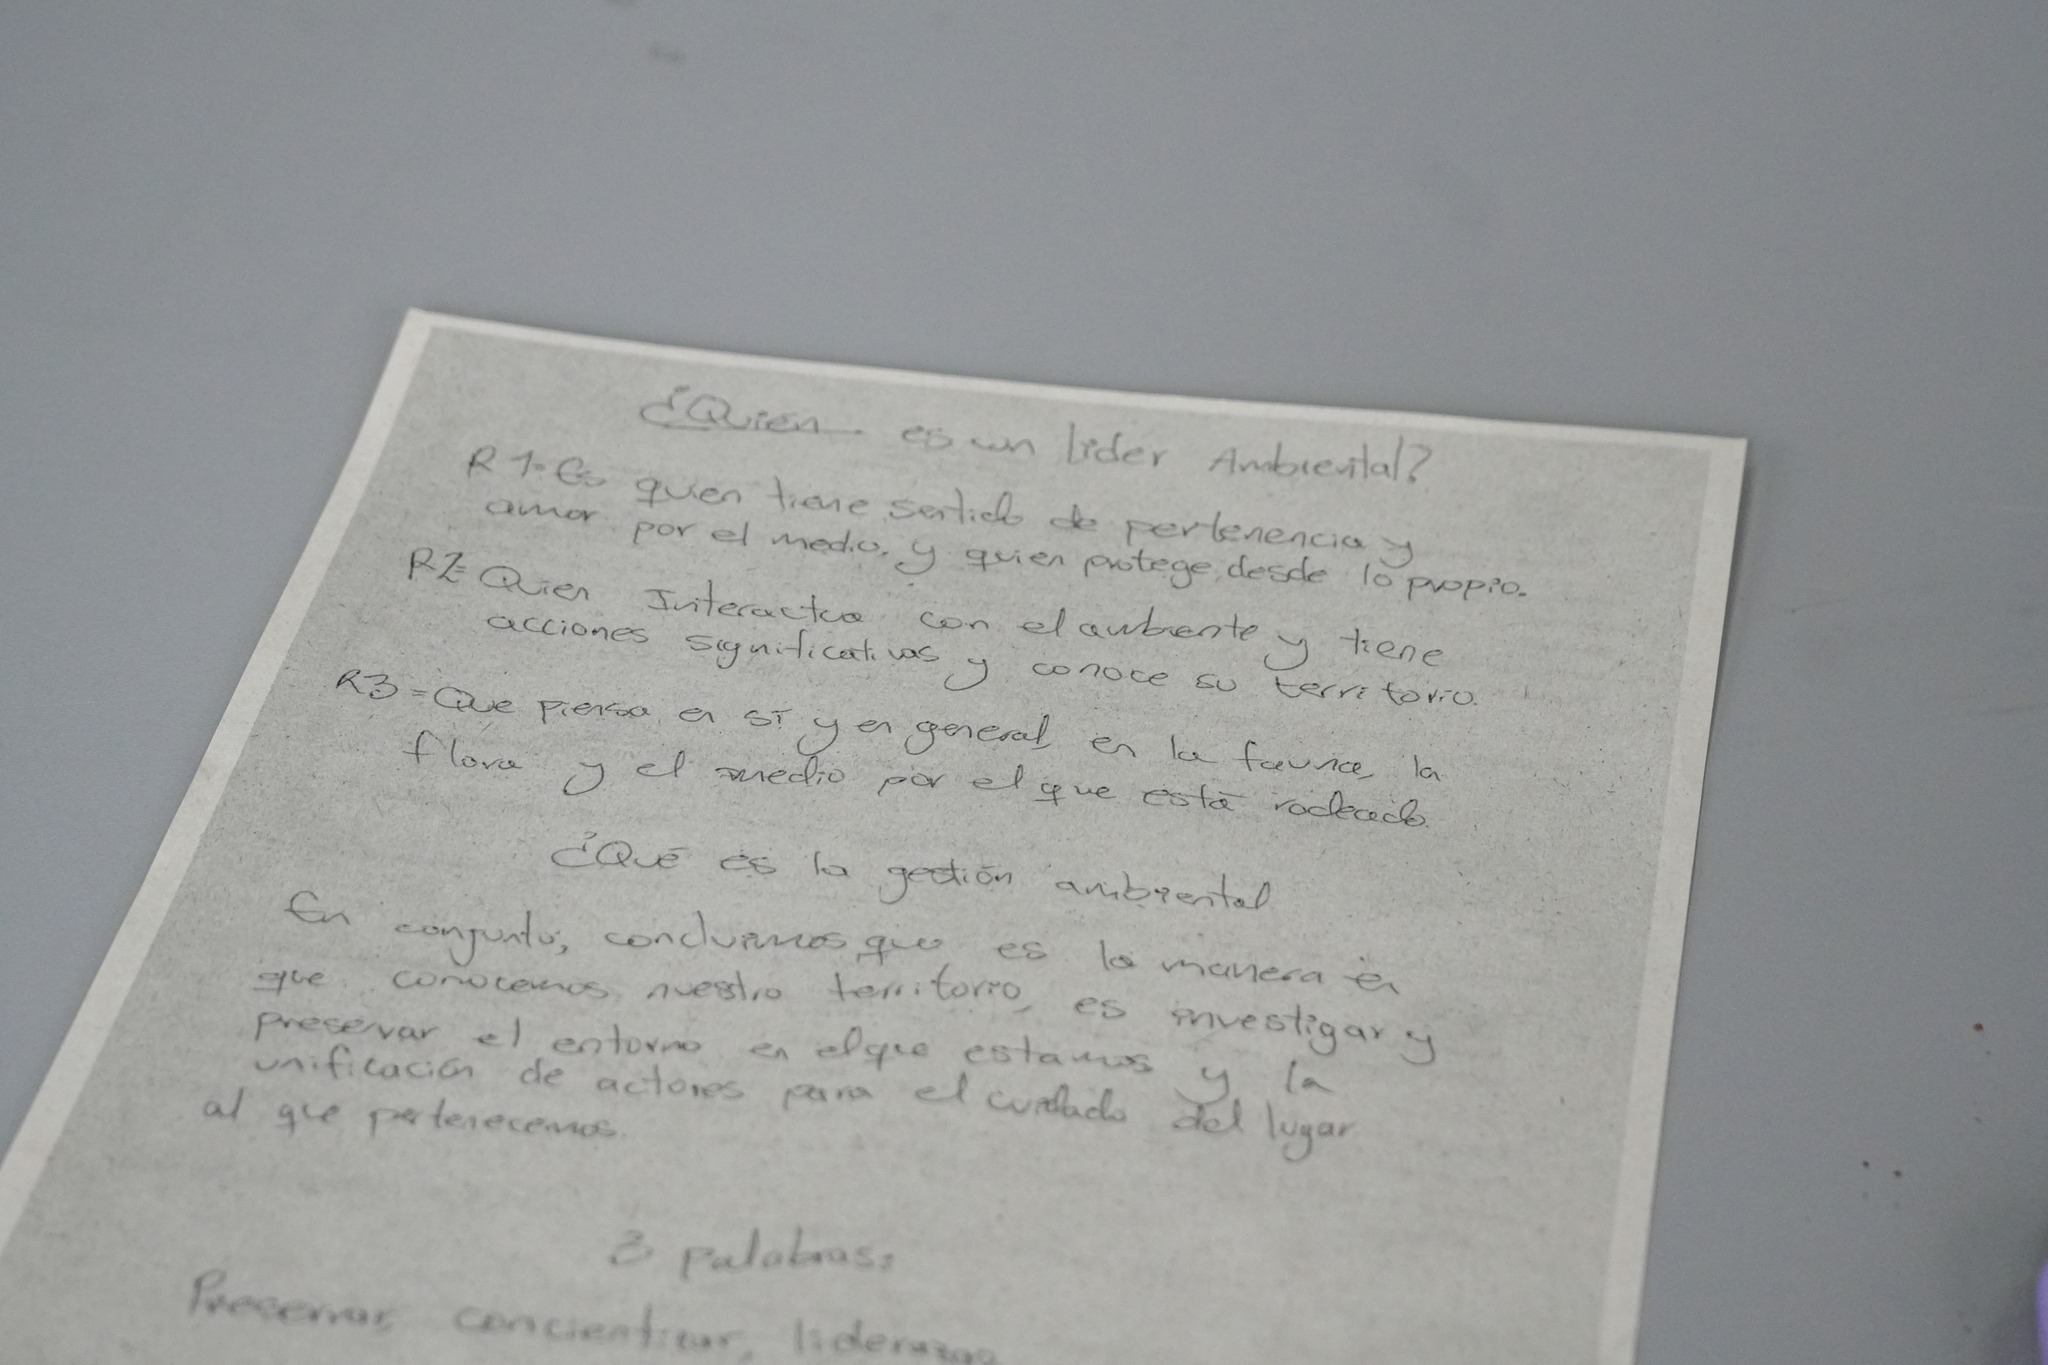 ¿Quién es un lider Ambiental?
R1= Es quien tiene sentido de pertenencia y
amor por el medio, y quien protege desde lo propio.
R2= Quien Interactua con el ambiente y tiene
acciones significativas y conoce su territorio.
R3= Que piensa en sí y en general, en la fauna, la
flora y el medio por el que está rodeado.
¿Qué es la gestión ambiental
En conjunto, concluimos que es la manera en
que conocemos nuestro territorio, es investigar y
preservar el entorno en el que estamos y la
unificación de actores para el cuidado del lugar
al que pertenecemos.
3 palabras:
Preservar, concientizar, liderazgo